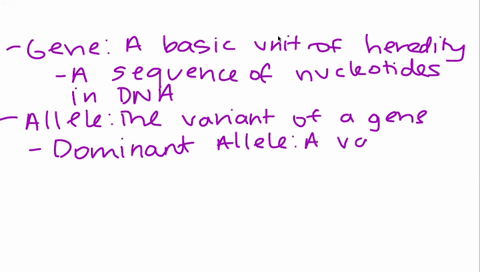 - Gene: A basic unit of heredity
- A sequence of nucleotides
in DNA
- Allele: The variant of a gene
- Dominant Allele: A va